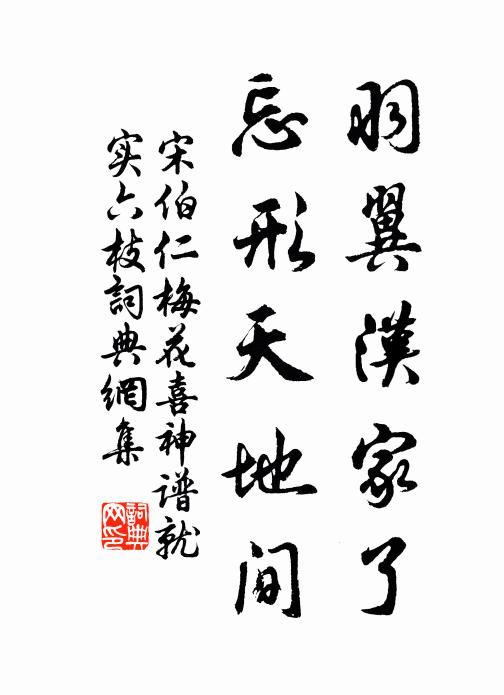 羽翼漢家了
忘形天地间
宋伯仁梅花喜神谱就
实六枝詞典網集
詞典网印